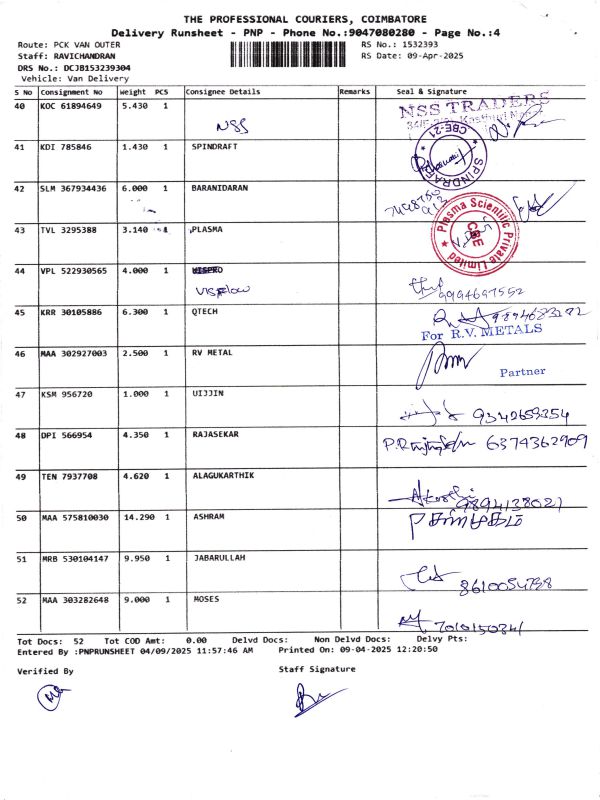 THE PROFESSIONAL COURIERS, COIMBATORE
Delivery Runsheet - PNP - Phone No.:9047080280 - Page No.:4
Route: PCK VAN OUTER RS No.: 1532393
Staff: RAVICHANDRAN RS Date: 09-Apr-2025
DRS No.: DCJB153239304
Vehicle: Van Delivery
S No Consignment No Weight PCS Consignee Details Remarks Seal & Signature
40 KOC 61894649 5.430 1 NSS TRADERS
NSS
CBE-21
41 KDI 785846 1.430 1 SPINDRAFT
SPINDRAFT
42 SLM 367934436 6.000 1 BARANIDARAN
43 TVL 3295388 3.140 PLASMA
Plasma Scientific Private Limited
CBE
44 VPL 522930565 4.000 1
9994697552
45 KRR 30105886 6.300 1 QTECH
For R.V. METALS
46 MAA 302927003 2.500 1 RV METAL
Partner
47 KSM 956720 1.000 1 UIJJIN
9342659354
48 DPI 566954 4.350 1 RAJASEKAR
6374362909
49 TEN 7937708 4.620 1 ALAGUKARTHIK
9894138021
50 MAA 575810030 14.290 1 ASHRAM
51 MRB 530104147 9.950 1 JABARULLAH
8610054798
52 MAA 303282648 9.000 1 MOSES
Tot Docs: 52 Tot COD Amt: 0.00 Delvd Docs: Non Delvd Docs: Delvy Pts:
Entered By :PNPRUNSHEET 04/09/2025 11:57:46 AM Printed On: 09-04-2025 12:20:50
Verified By Staff Signature